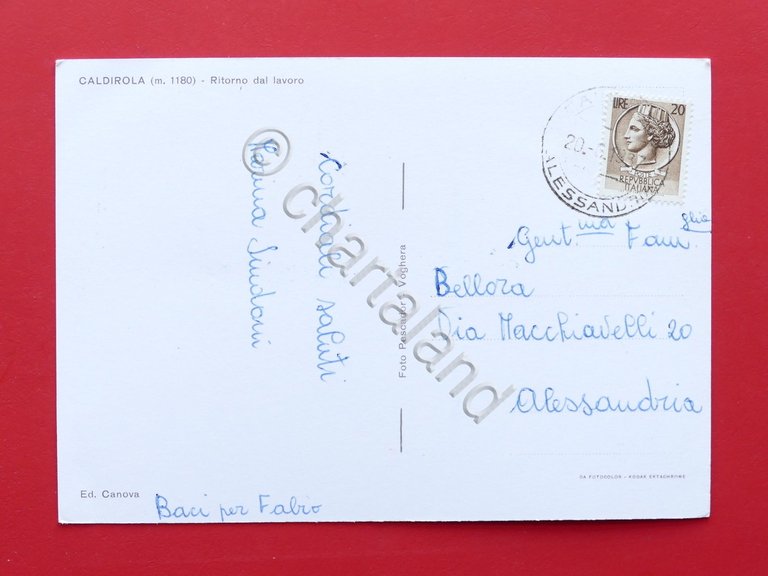 CALDIROLA (m. 1180) - Ritorno dal lavoro
LIRE 20
REPVBBLICA
ITALIANA
20.-
ALESSANDRIA
Cordiali saluti
Baci per Fabio
Foto Pescadori - Voghera
Gent.ma Fam.glia
Bellora
Via Macchiavelli 20
Alessandria
DA FOTOCOLOR - KODAK EKTACHROME
Ed. Canova
© chartaland